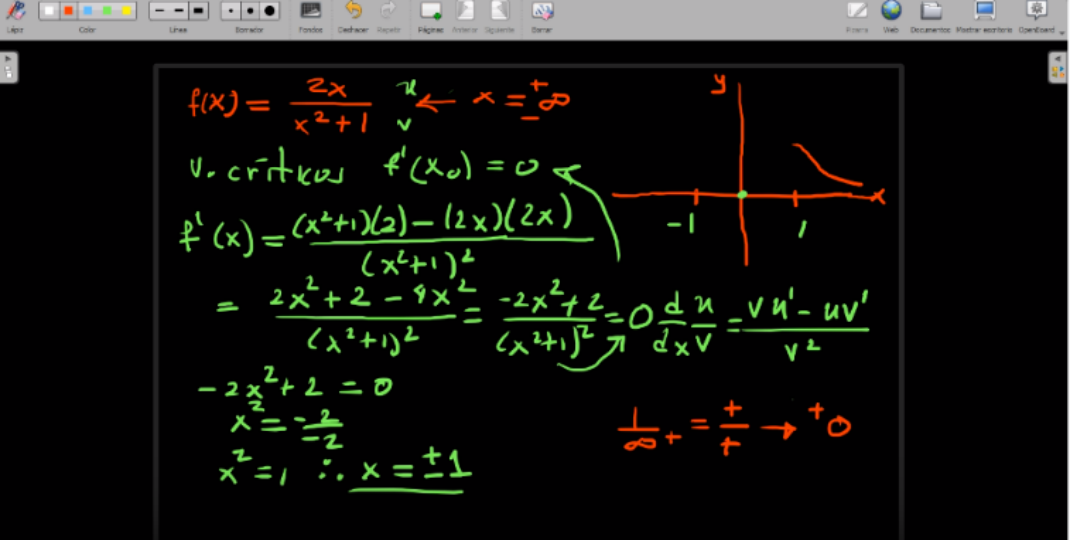 Lápiz Color Línea Borrador Fondos Deshacer Repetir Páginas Anterior Siguiente Borrar Pizarra Web Documentos Mostrar escritorio OpenBoard
f(x) = 2x / x²+1 u / v ← x = ±∞
y
v. críticos f'(x₀) = 0
x
-1 1
f'(x) = (x²+1)(2) - (2x)(2x) / (x²+1)²
= 2x²+2-4x² / (x²+1)² = -2x²+2 / (x²+1)² = 0 d/dx u/v = vu' - uv' / v²
-2x²+2 = 0
x² = -2/-2
1/∞+ = +/+ → +0
x² = 1 ∴ x = ±1